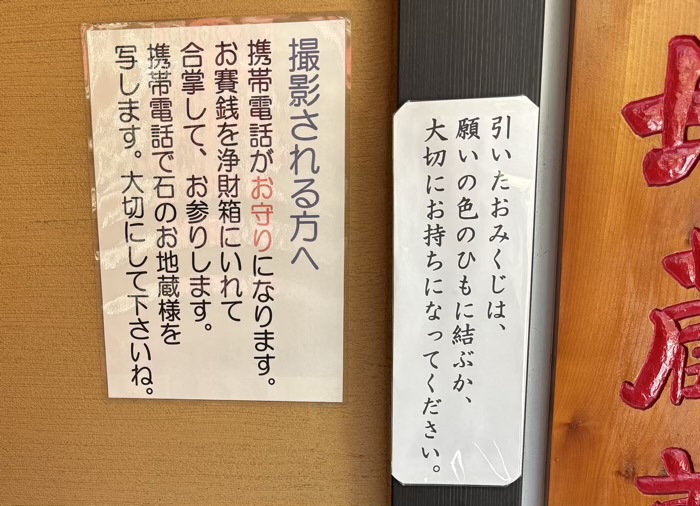 撮影される方へ
携帯電話がお守りになります。
お賽銭を浄財箱にいれて
合掌して、お参りします。
携帯電話で石のお地蔵様を
写します。大切にして下さいね。
引いたおみくじは、
願いの色のひもに結ぶか、
大切にお持ちになってください。
地蔵